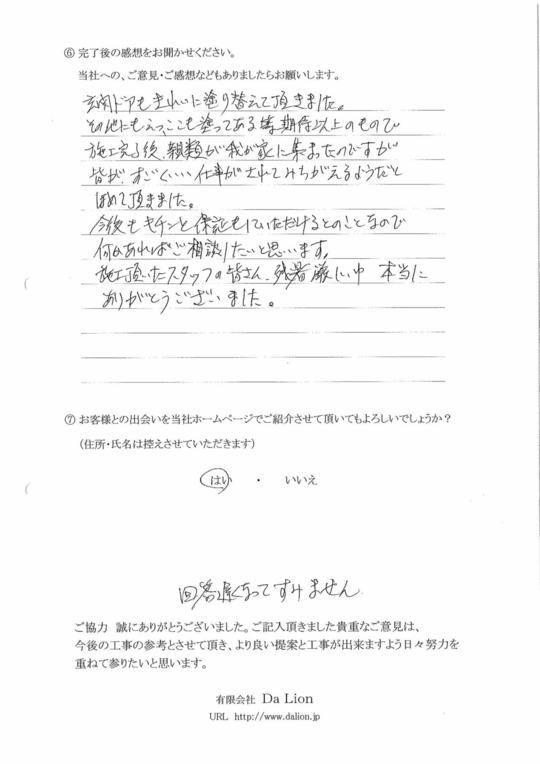 ⑥ 完了後の感想をお聞かせください。
当社への、ご意見・ご感想などもありましたらお願いします。
玄関ドアもきれいに塗り替えて頂きました。
その他にもえっここも塗ってある等期待以上のもので
施工完了後、親類が我が家に集まったのですが
皆が、すごくいい仕事がされてみちがえるようだと
ほめて頂きました。
今後もキチンと保証もしていただけるとのことなので
何かあればご相談したいと思います。
施工頂いたスタッフの皆さん、残暑厳しい中 本当に
ありがとうございました。
⑦ お客様との出会いを当社ホームページでご紹介させて頂いてもよろしいでしょうか？
（住所・氏名は控えさせていただきます）
はい ・ いいえ
回答遅くなってすみません
ご協力 誠にありがとうございました。ご記入頂きました貴重なご意見は、
今後の工事の参考とさせて頂き、より良い提案と工事が出来ますよう日々努力を
重ねて参りたいと思います。
有限会社 Da Lion
URL http://www.dalion.jp